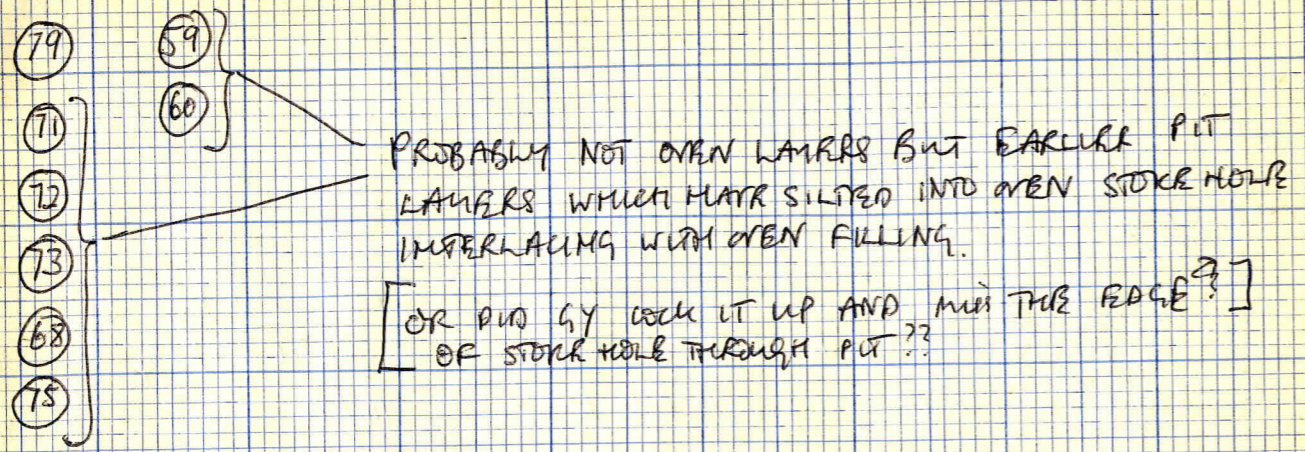 79 59
60
71
72
73
68
75
PROBABLY NOT OVEN LAYERS BUT EARLIER PIT
LAYERS WHICH HAVE SILTED INTO OVEN STOKE HOLE
INTERLACING WITH OVEN FILLING.
[OR DID GY COCK IT UP AND MISS THE EDGE ??]
OF STOKE HOLE THROUGH PIT ??